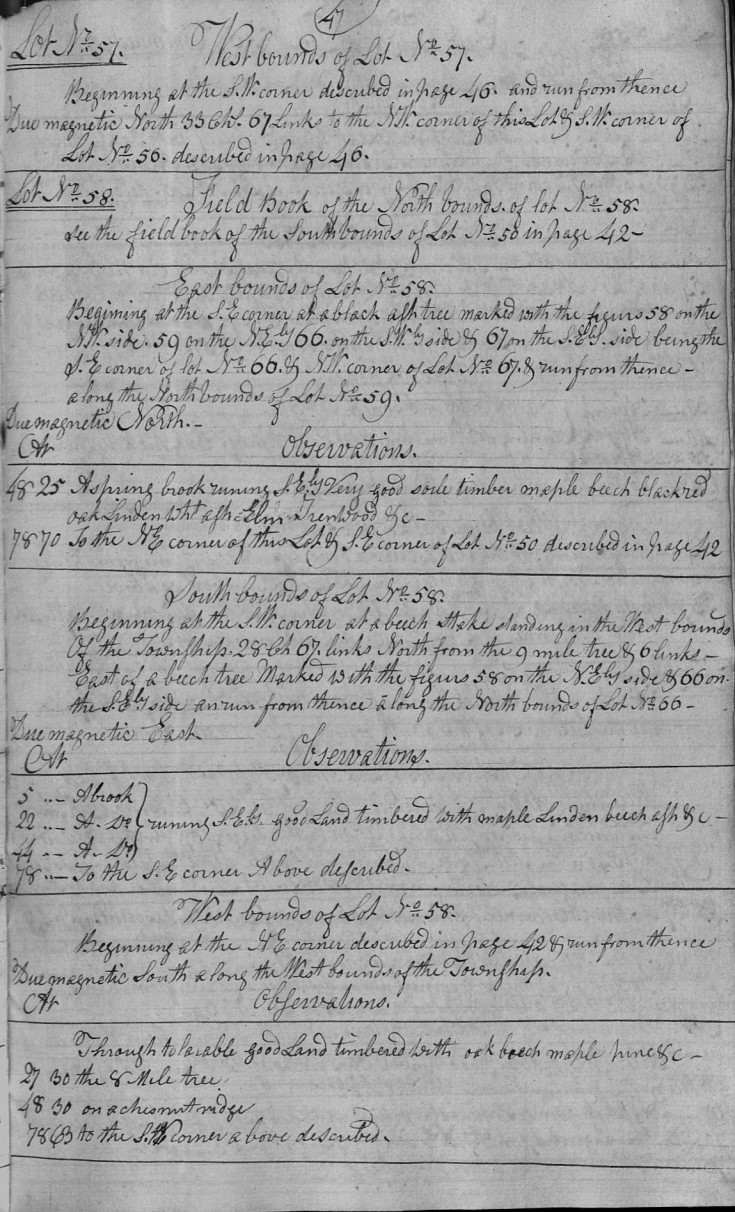 47
Lot No. 57. West bounds of Lot No. 57.
Beginning at the S.W. corner described in page 46. and run from thence
Due magnetic North 33 Chs. 67 Links to the N.W. corner of this Lot & S.W. corner of
Lot No. 56. described in page 46.
Lot No. 58. Field Book of the North bounds of lot No. 58.
see the field book of the South bounds of Lot No. 50 in page 42-
East bounds of Lot No. 58.
Begining at the S.E corner at a black ash tree marked with the figurs 58 on the
N.W. side. 59 on the N.Ely 66. on the S.Wly side & 67 on the S.Ely. side being the
S.E corner of lot No. 66. & N.W. corner of Lot No. 67. & run from thence -
along the North bounds of Lot No. 59.
Due magnetic North.-
At Observations.
48 25 A spring brook runing S.Ely Very good soile timber maple beech black red
oak Linden wht ash Elm Irenwood &c-
78 70 To the N.E corner of this Lot & S.E corner of Lot No. 50 described in page 42
South bounds of Lot No. 58.
Beginning at the S.W. corner at a beech stake standing in the West bounds
Of the Township. 28 Ch 67. links North from the 9 mile tree & 6 links -
East of a beech tree Marked with the figurs 58 on the N.Ely side & 66 on
the S.Ely side an run from thence along the North bounds of Lot No. 66 -
Due magnetic East
At Observations.
5 .. - A brook
22 .. - A - Do } runing S.Ely. good Land timbered with maple Linden beech ash & c -
44 - - A - Do
78 .. - To the S.E corner Above described.
West bounds of Lot No. 58.
Beginning at the N.E corner described in page 42 & run from thence
Due magnetic South along the West bounds of the Township.
At Observations.
Through tolarable good Land timbered with oak beech maple pine & c -
27 30 the 8 Mile tree
48 30 on a chesnut ridge
78 63 to the S.W corner above described.